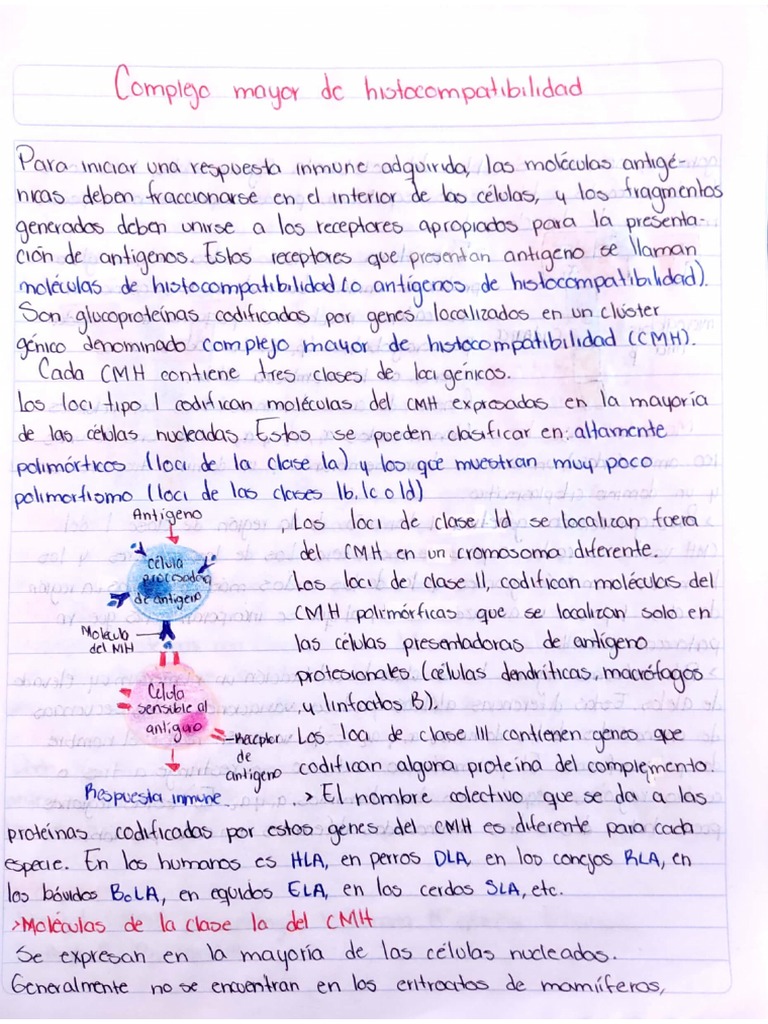 Complejo mayor de histocompatibilidad
Para iniciar una respuesta inmune adquirida, las moléculas antigé-
nicas deben fraccionarse en el interior de las células, y los fragmentos
generados deben unirse a los receptores apropiados para la presenta-
ción de antígenos. Estos receptores que presentan antígeno se llaman
moléculas de histocompatibilidad (o antígenos de histocompatibilidad).
Son glucoproteínas codificadas por genes localizados en un clúster
génico denominado complejo mayor de histocompatibilidad (CMH).
Cada CMH contiene tres clases de loci génicos.
Los loci tipo I codifican moléculas del CMH expresadas en la mayoría
de las células nucleadas. Estos se pueden clasificar en: altamente
polimórficos (loci de la clase Ia) y los que muestran muy poco
polimorfismo (loci de las clases Ib, Ic o Id)
Antígeno
célula
procesadora
de antígeno
Molécula
del MIH
Célula
sensible al
antíguo
Receptor
de
antígeno
Respuesta inmune
Los loci de clase Id se localizan fuera
del CMH en un cromosoma diferente.
Los loci de clase II, codifican moléculas del
CMH polimórficas que se localizan solo en
las células presentadoras de antígeno
profesionales (células dendríticas, macrófagos
y linfocitos B).
Los loci de clase III contienen genes que
codifican alguna proteína del complemento.
> El nombre colectivo que se da a las
proteínas codificadas por estos genes del CMH es diferente para cada
especie. En los humanos es HLA, en perros DLA, en los conejos RLA, en
los bóvidos BoLA, en equidos ELA, en los cerdos SLA, etc.
>Moléculas de la clase Ia del CMH
Se expresan en la mayoría de las células nucleadas.
Generalmente no se encuentran en los eritrocitos de mamíferos,